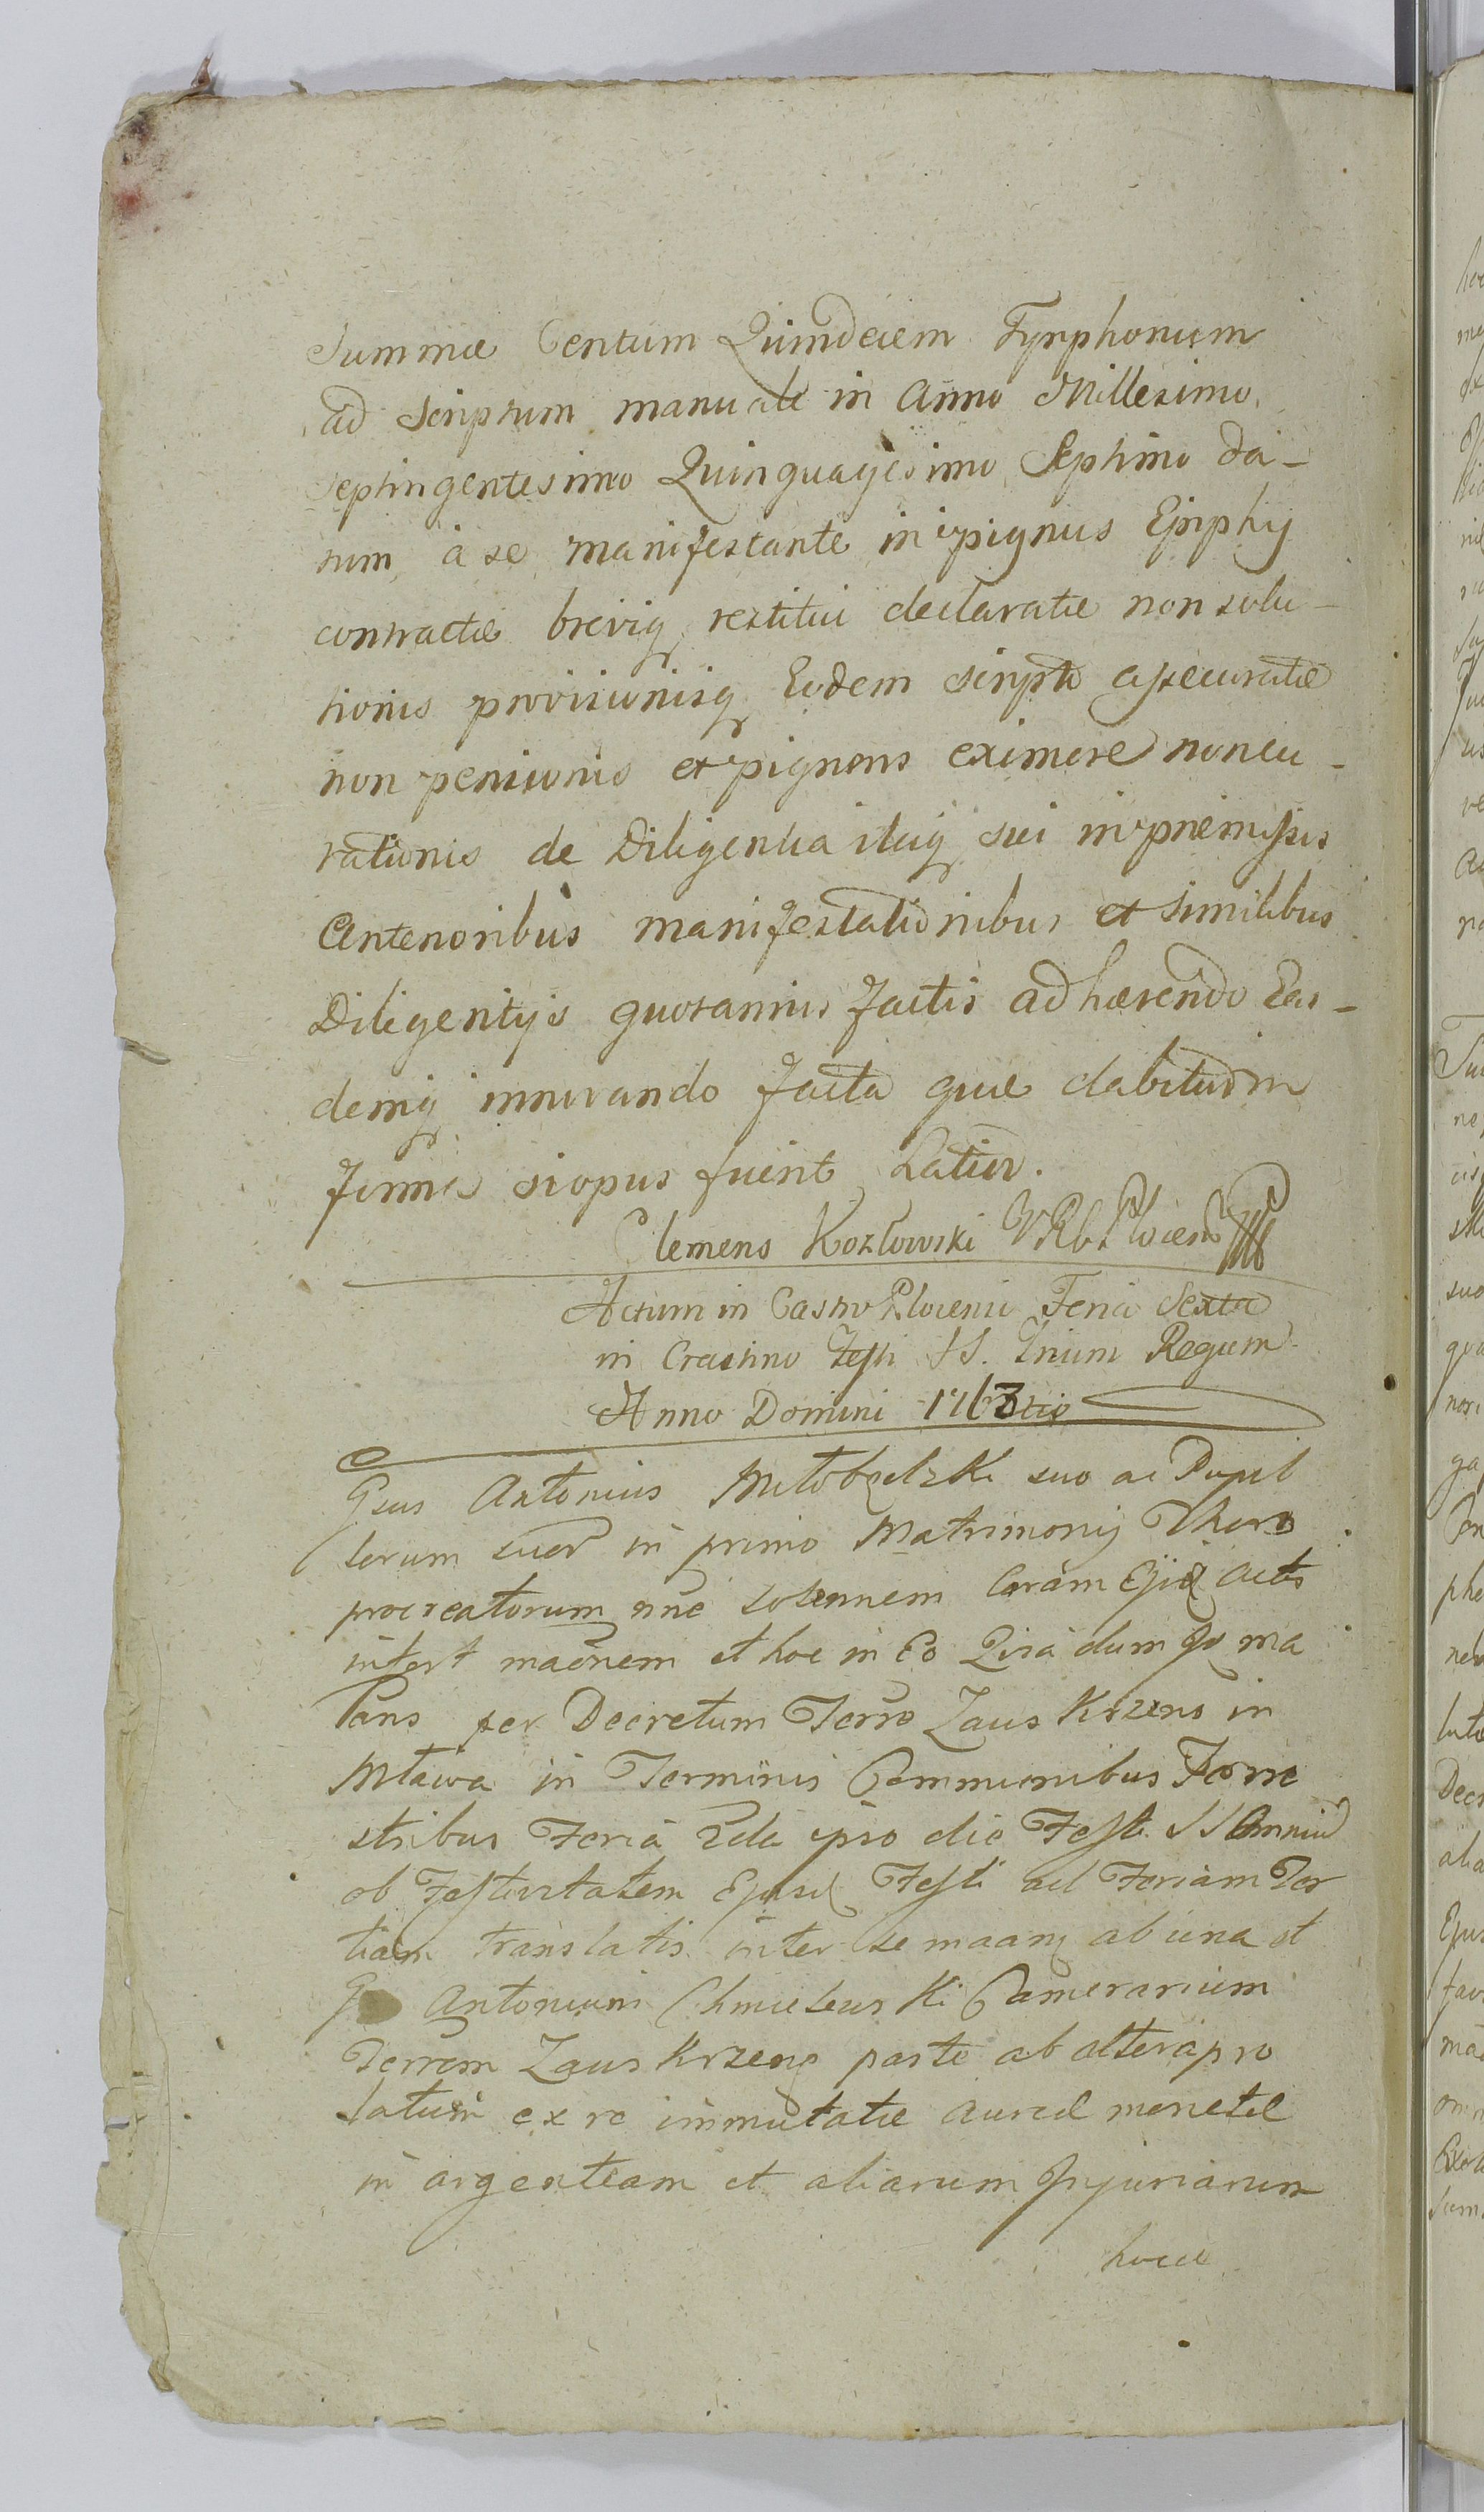 Summæ Centum Quindeciem Tynphonum
ad Scriptum manuale in Anno Millesimo
septingentesimo Quinquagesimo Septimo da-
tum, a se manifestante in pignus Epiphij
contractæ brevig restitui declaratæ non solu-
tionis provisionisq Eodem scripto assecuratæ
non pensionis et pignons eximere non cu-
rationis de Diligentia itaq sui in præmissis
Anterioribus manifestationibus et similibus
Diligentijs quotannis factis adhærendo Eas-
demq innovando facta quæ dabitur in
forma si opus fuerit Latior.
Clemens Kozłowski VRbPlocens
Actum in Castro Plocensi Feria Sexta
in Crastino Festi SS. Trium Regum
Anno Domini 1763tio
Gsus Antonius Miłobędzki suo ac Pupil
lorum suor in primo Matrimonij Thoro
procreatorum nne Solennem Coram Ejsd actis
infert maonem et hoc in Eo Quia dum Ip ma
tans per Decretum Terro Zaus Krzens in
Mława in Terminis Communibus Terre
stribus Feria 2da ipso die Festi SS Omniu
ob Festivitatem Ejusd Festi ad Feriam Ter
tiam translatis inter se maanq ab una et
G Antonium Chmielewski Camerarium
Terrem Zaus Krzeng parte ab altera pro
latum ex re immutatæ aureæ monetæ
in argenteam et aliarum Injuriarum